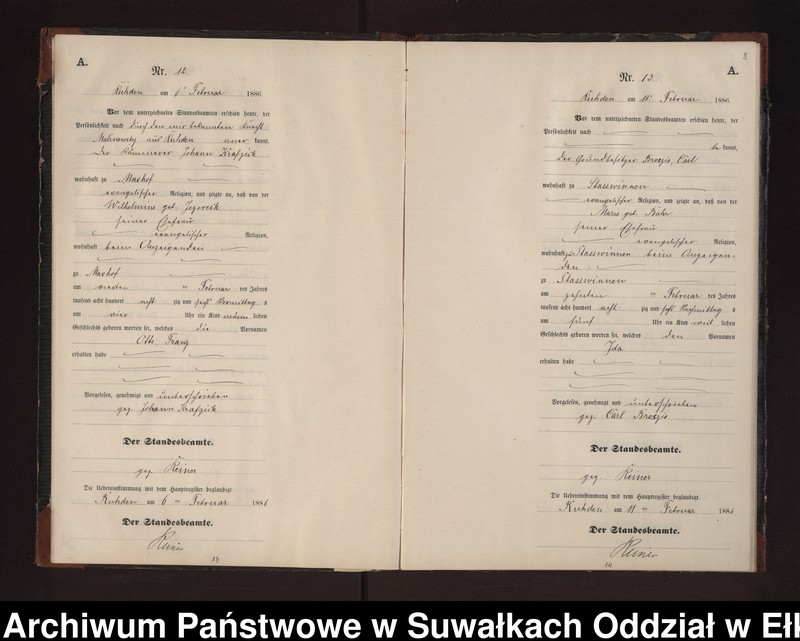 A.
Nr. 12
Ruhden am 6 Februar 1886.
Vor dem unterzeichneten Standesbeamten erschien heute, der
Persönlichkeit nach durch den mir bekannten Knecht
Malinowsky aus Ruhden aner kannt,
der Kämmerer Johann Krafzick
wohnhaft zu Marhof
evangelischer Religion, und zeigte an, daß von der
Wilhelmine geb. Jezorreck
seiner Ehefrau
evangelischer Religion,
wohnhaft beim Anzeigenden
zu Marhof
am Februar des Jahres
tausend acht hundert acht zig und sechs Vormittag s
um vier Uhr ein Kind männ lichen
Geschlechts geboren worden sei, welches die Vornamen
Otto Franz
erhalten habe
Vorgelesen, genehmigt und unterschrieben
gez. Johann Krafzick
Der Standesbeamte.
gez. Reiner
Die Uebereinstimmung mit dem Hauptregister beglaubigt
Ruhden am 6 ten Februar 1886
Der Standesbeamte.
Reiner
8
A.
Nr. 13
Ruhden am 11 Februar 1886.
Vor dem unterzeichneten Standesbeamten erschien heute, der
Persönlichkeit nach
be kannt,
der Grundbesitzer Broszio, Carl
wohnhaft zu Stasswinnen
evangelischer Religion, und zeigte an, daß von der
Marie geb. Bahr
seiner Ehefrau
evangelischer Religion,
wohnhaft zu Stasswinnen beim Anzeigen-
den
zu Stasswinnen
am zehnten Februar des Jahres
tausend acht hundert acht zig und sechs Nachmittag s
um fünf Uhr ein Kind weib lichen
Geschlechts geboren worden sei, welches den Vornamen
Ida
erhalten habe
Vorgelesen, genehmigt und unterschrieben
gez. Carl Broszio
Der Standesbeamte.
gez. Reiner
Die Uebereinstimmung mit dem Hauptregister beglaubigt.
Ruhden am 11 ten Februar 1886
Der Standesbeamte.
Reiner
Archiwum Państwowe w Suwałkach Oddział w Eł